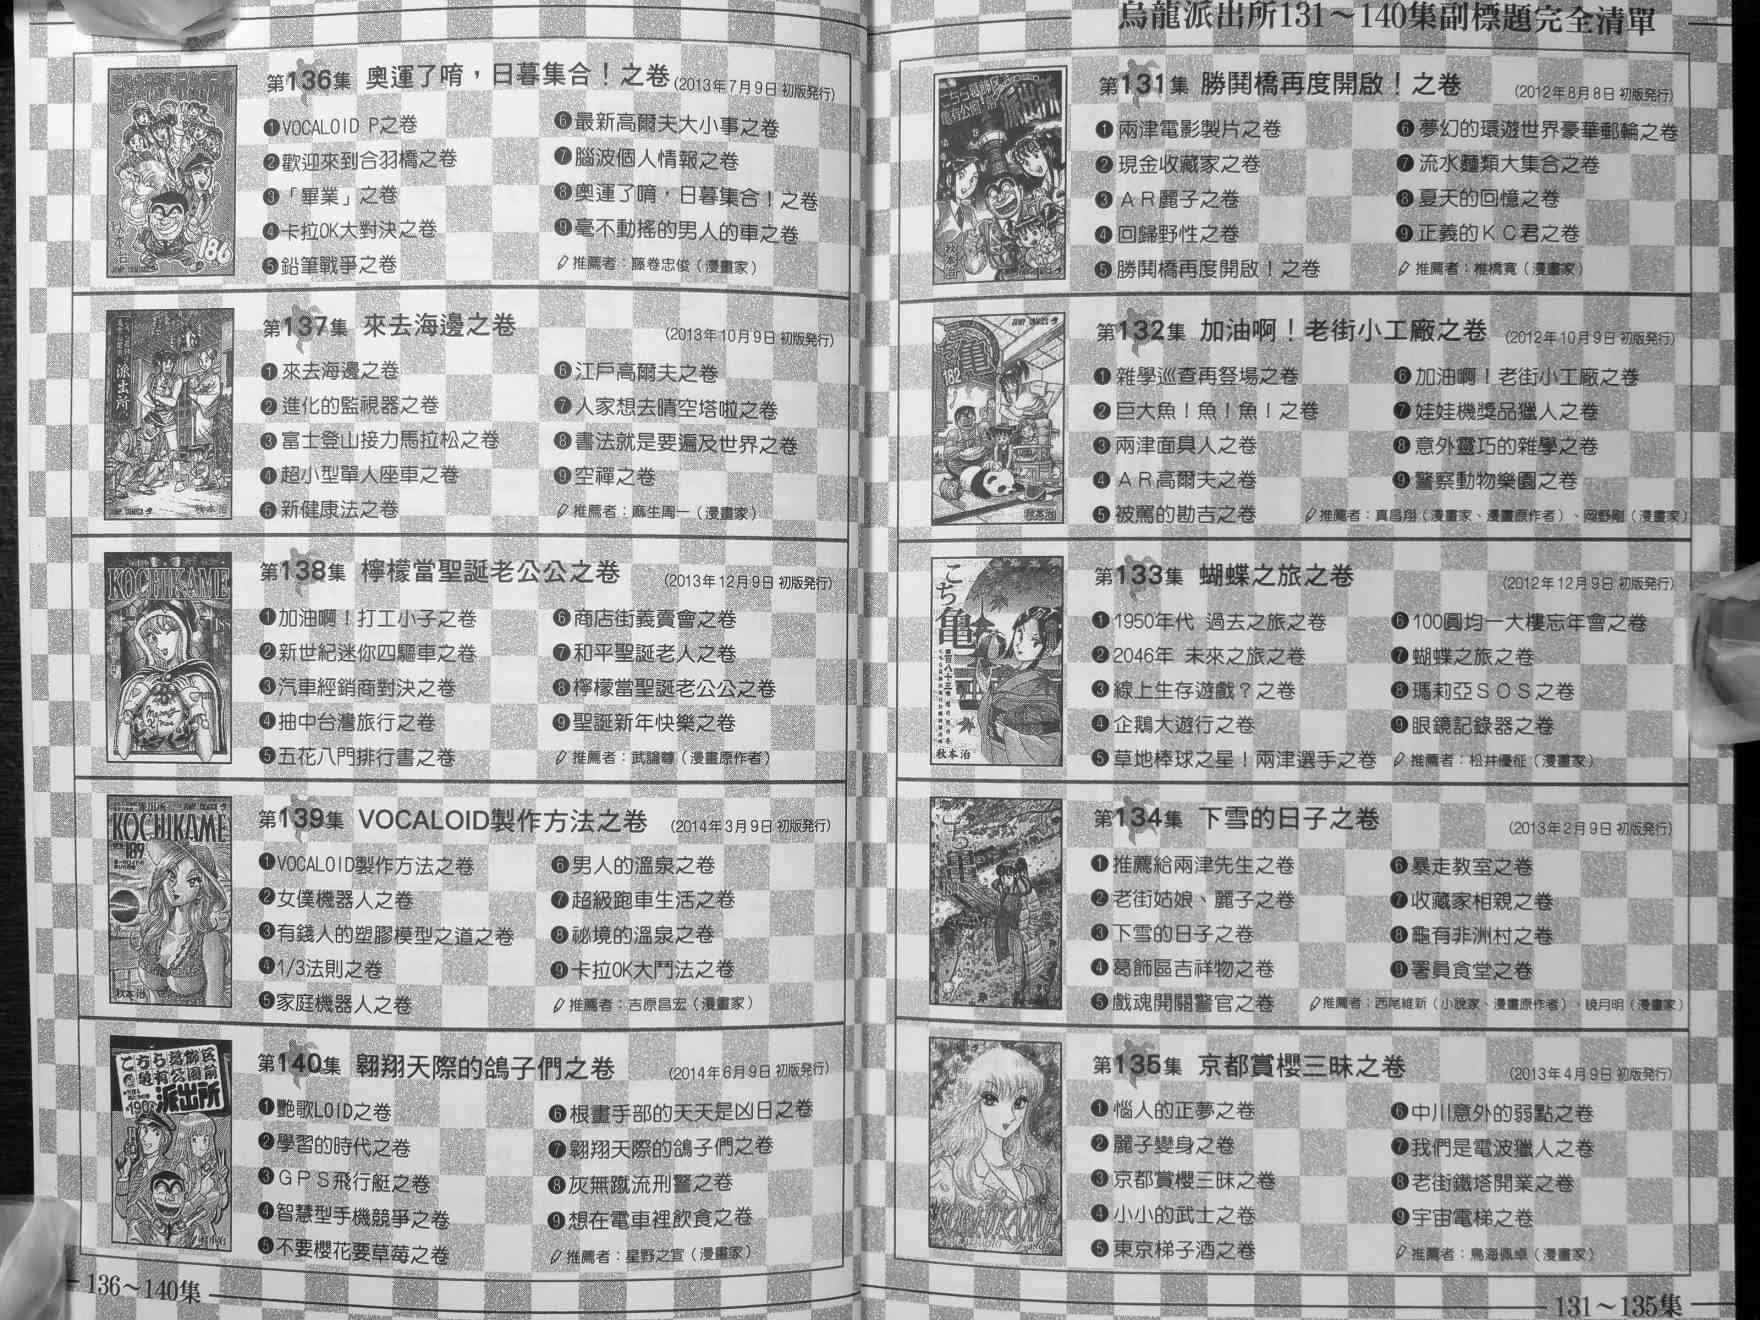 烏龍派出所131～140集副標題完全清單
第131集 勝鬨橋再度開啟！之卷
(2012年8月8日 初版発行)
❶兩津電影製片之卷
❷現金收藏家之卷
❸ＡＲ麗子之卷
❹回歸野性之卷
❺勝鬨橋再度開啟！之卷
❻夢幻的環遊世界豪華郵輪之卷
❼流水麵類大集合之卷
❽夏天的回憶之卷
❾正義的ＫＣ君之卷
推薦者：椎橋寬（漫畫家）
第132集 加油啊！老街小工廠之卷
(2012年10月9日 初版発行)
❶雜學巡查再登場之卷
❷巨大魚！魚！魚！之卷
❸兩津面具人之卷
❹ＡＲ高爾夫之卷
❺被罵的勘吉之卷
❻加油啊！老街小工廠之卷
❼娃娃機獎品獵人之卷
❽意外靈巧的雜學之卷
❾警察動物樂園之卷
推薦者：真昌翔（漫畫家、漫畫原作者）、岡野剛（漫畫家）
第133集 蝴蝶之旅之卷
(2012年12月9日 初版発行)
❶1950年代 過去之旅之卷
❷2046年 未來之旅之卷
❸線上生存遊戲？之卷
❹企鵝大遊行之卷
❺草地棒球之星！兩津選手之卷
❻100圓均一大樓忘年會之卷
❼蝴蝶之旅之卷
❽瑪莉亞ＳＯＳ之卷
❾眼鏡記錄器之卷
推薦者：松井優征（漫畫家）
第134集 下雪的日子之卷
(2013年2月9日 初版発行)
❶推薦給兩津先生之卷
❷老街姑娘、麗子之卷
❸下雪的日子之卷
❹葛飾區吉祥物之卷
❺戲魂開關警官之卷
❻暴走教室之卷
❼收藏家相親之卷
❽龜有非洲村之卷
❾署員食堂之卷
推薦者：西尾維新（小說家、漫畫原作者）、暁月明（漫畫家）
第135集 京都賞櫻三昧之卷
(2013年4月9日 初版発行)
❶惱人的正夢之卷
❷麗子變身之卷
❸京都賞櫻三昧之卷
❹小小的武士之卷
❺東京梯子酒之卷
❻中川意外的弱點之卷
❼我們是電波獵人之卷
❽老街鐵塔開業之卷
❾宇宙電梯之卷
推薦者：鳥海佩卓（漫畫家）
131～135集
第136集 奧運了唷，日暮集合！之卷
(2013年7月9日 初版発行)
❶VOCALOID P之卷
❷歡迎來到合羽橋之卷
❸「畢業」之卷
❹卡拉OK大對決之卷
❺鉛筆戰爭之卷
❻最新高爾夫大小事之卷
❼腦波個人情報之卷
❽奧運了唷，日暮集合！之卷
❾毫不動搖的男人的車之卷
推薦者：藤卷忠俊（漫畫家）
第137集 來去海邊之卷
(2013年10月9日 初版発行)
❶來去海邊之卷
❷進化的監視器之卷
❸富士登山接力馬拉松之卷
❹超小型單人座車之卷
❺新健康法之卷
❻江戶高爾夫之卷
❼人家想去晴空塔啦之卷
❽書法就是要遍及世界之卷
❾空禪之卷
推薦者：麻生周一（漫畫家）
第138集 檸檬當聖誕老公公之卷
(2013年12月9日 初版発行)
❶加油啊！打工小子之卷
❷新世紀迷你四驅車之卷
❸汽車經銷商對決之卷
❹抽中台灣旅行之卷
❺五花八門排行書之卷
❻商店街義賣會之卷
❼和平聖誕老人之卷
❽檸檬當聖誕老公公之卷
❾聖誕新年快樂之卷
推薦者：武論尊（漫畫原作者）
第139集 VOCALOID製作方法之卷
(2014年3月9日 初版発行)
❶VOCALOID製作方法之卷
❷女僕機器人之卷
❸有錢人的塑膠模型之道之卷
❹1/3法則之卷
❺家庭機器人之卷
❻男人的溫泉之卷
❼超級跑車生活之卷
❽祕境的溫泉之卷
❾卡拉OK大鬥法之卷
推薦者：吉原昌宏（漫畫家）
第140集 翱翔天際的鴿子們之卷
(2014年6月9日 初版発行)
❶艷歌LOID之卷
❷學習的時代之卷
❸ＧＰＳ飛行艇之卷
❹智慧型手機競爭之卷
❺不要櫻花要草莓之卷
❻根畫手部的天天是凶日之卷
❼翱翔天際的鴿子們之卷
❽灰無蹴流刑警之卷
❾想在電車裡飲食之卷
推薦者：星野之宣（漫畫家）
136～140集